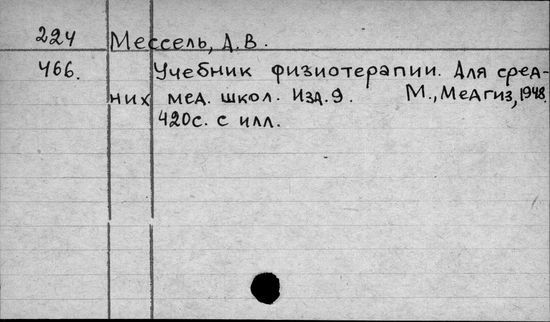 224 Мессель, Д.В.
466. Учебник физиотерапии. Для сред-
них мед. школ. Изд. 9. М., Медгиз, 1948.
420с. с илл.